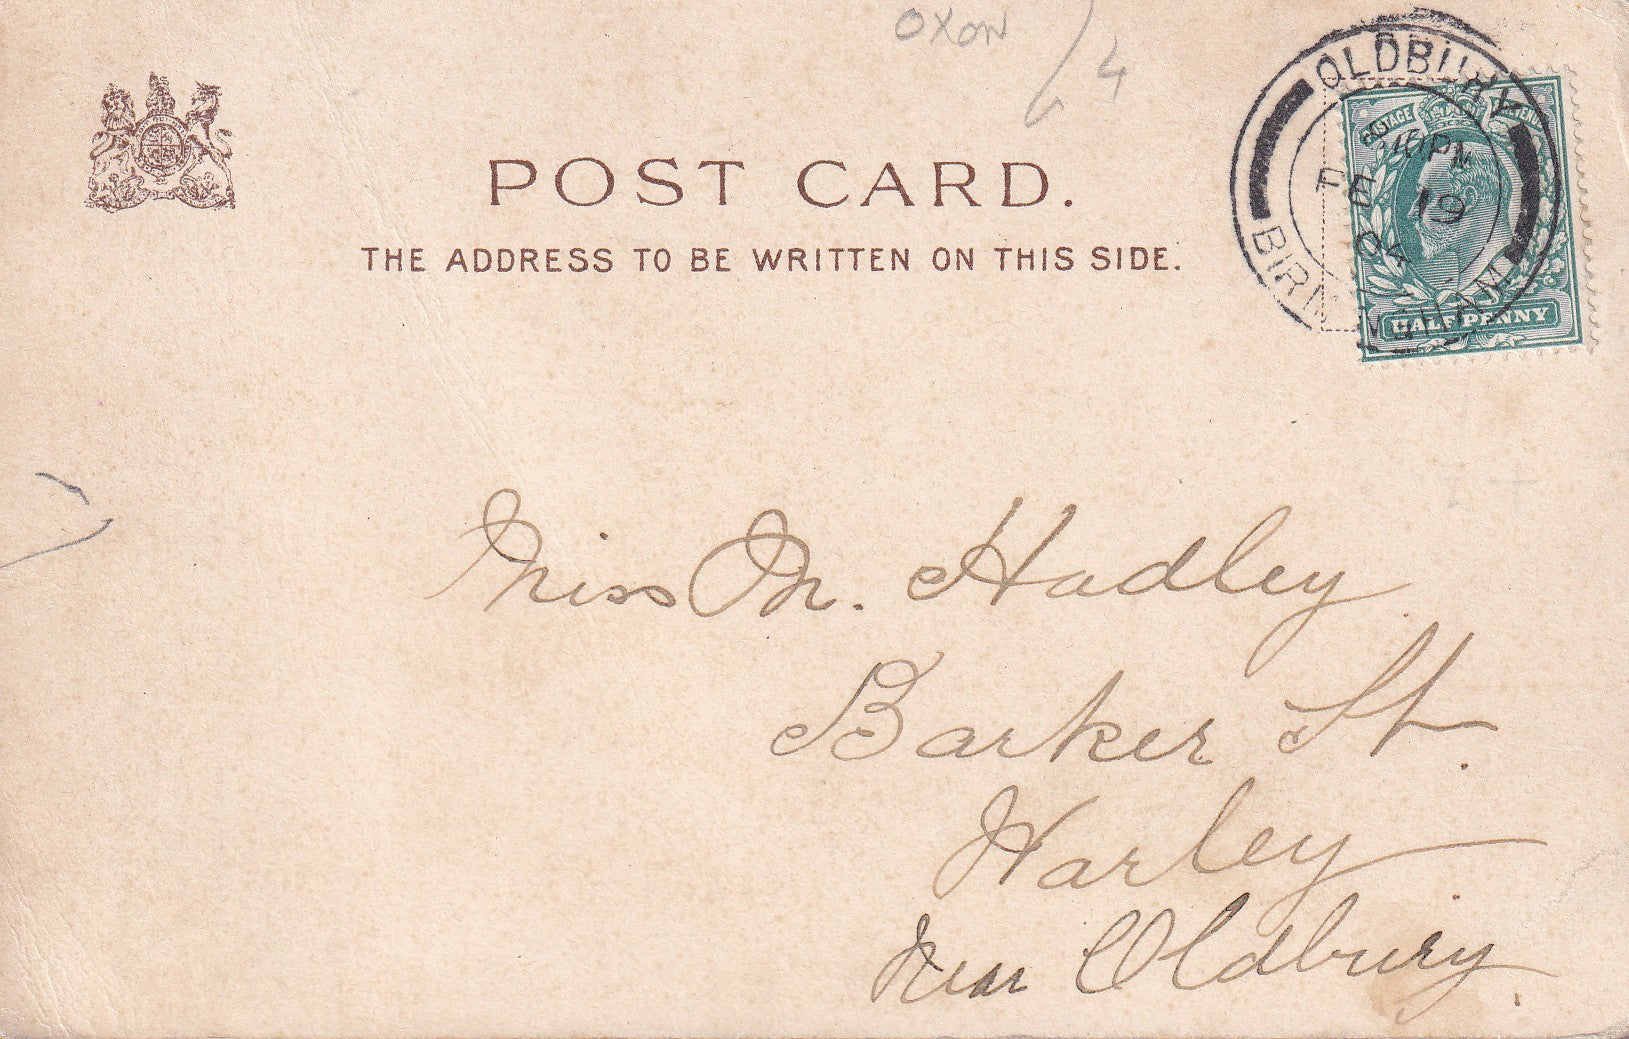 OXON /4
POST CARD.
THE ADDRESS TO BE WRITTEN ON THIS SIDE.
OLDBURY
PM
FE 19
04
BIRMINGHAM
POSTAGE
HALFPENNY
Miss M. Hadley
Barker St.
Warley
Near Oldbury.